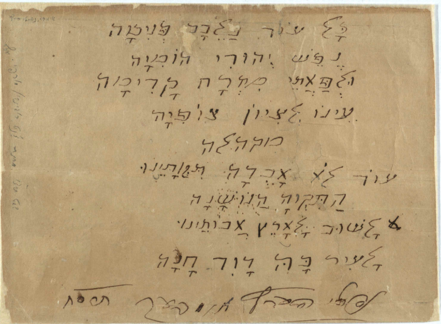 כָּל עוֹד בַּלֵּבָב פְּנִימָה
נֶפֶשׁ יְהוּדִי הוֹמִיָּה
וּלְפַאֲתֵי מִזְרָח קָדִימָה
עֵינוֹ לְצִיּוֹן צוֹפִיָּה
מקהלה
עוֹד לֹא אָבְדָה תִּקְוָתֵינוּ
הַתִּקְוָה הַנּוֹשָׁנָה
לָשׁוּב לְאֶרֶץ אֲבוֹתֵינוּ
לָעִיר בָּהּ דָּוִד חָנָה
נפתלי הערץ אימבער